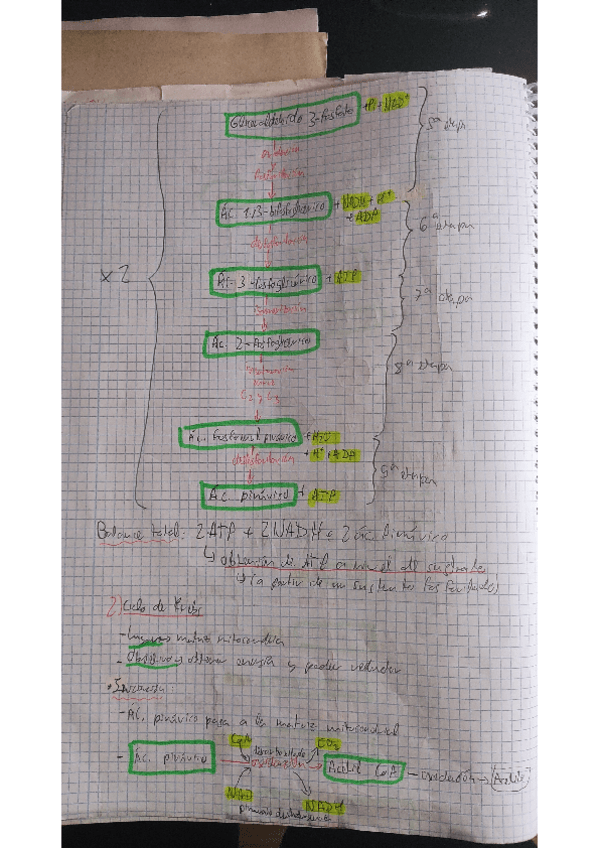 Gliceraldehído 3-fosfato + Pi + NAD+
5ª etapa
Ác. 1,3-bifosfoglicérico + NADH + H+
+ ADP
6ª etapa
x2
Ác. 3-fosfoglicérico + ATP
7ª etapa
Ác. 2-fosfoglicérico
8ª etapa
Ác. fosfoenolpirúvico + H2O
+ H+ + ADP
desfosforilación
9ª etapa
Ác. pirúvico + ATP
Balance total: 2ATP + 2NADH + 2 ác. Pirúvico
↳ obtención de ATP a nivel de sustrato
↳ (a partir de un sustrato fosforilado)
2) Ciclo de Krebs
- Lugar → matriz mitocondrial
- Objetivo → obtener energía y poder reductor
- Ác. pirúvico pasa a la matriz mitocondrial
CoA CO2
- Ác. pirúvico → Acetil CoA - oxidación →
NAD NADH